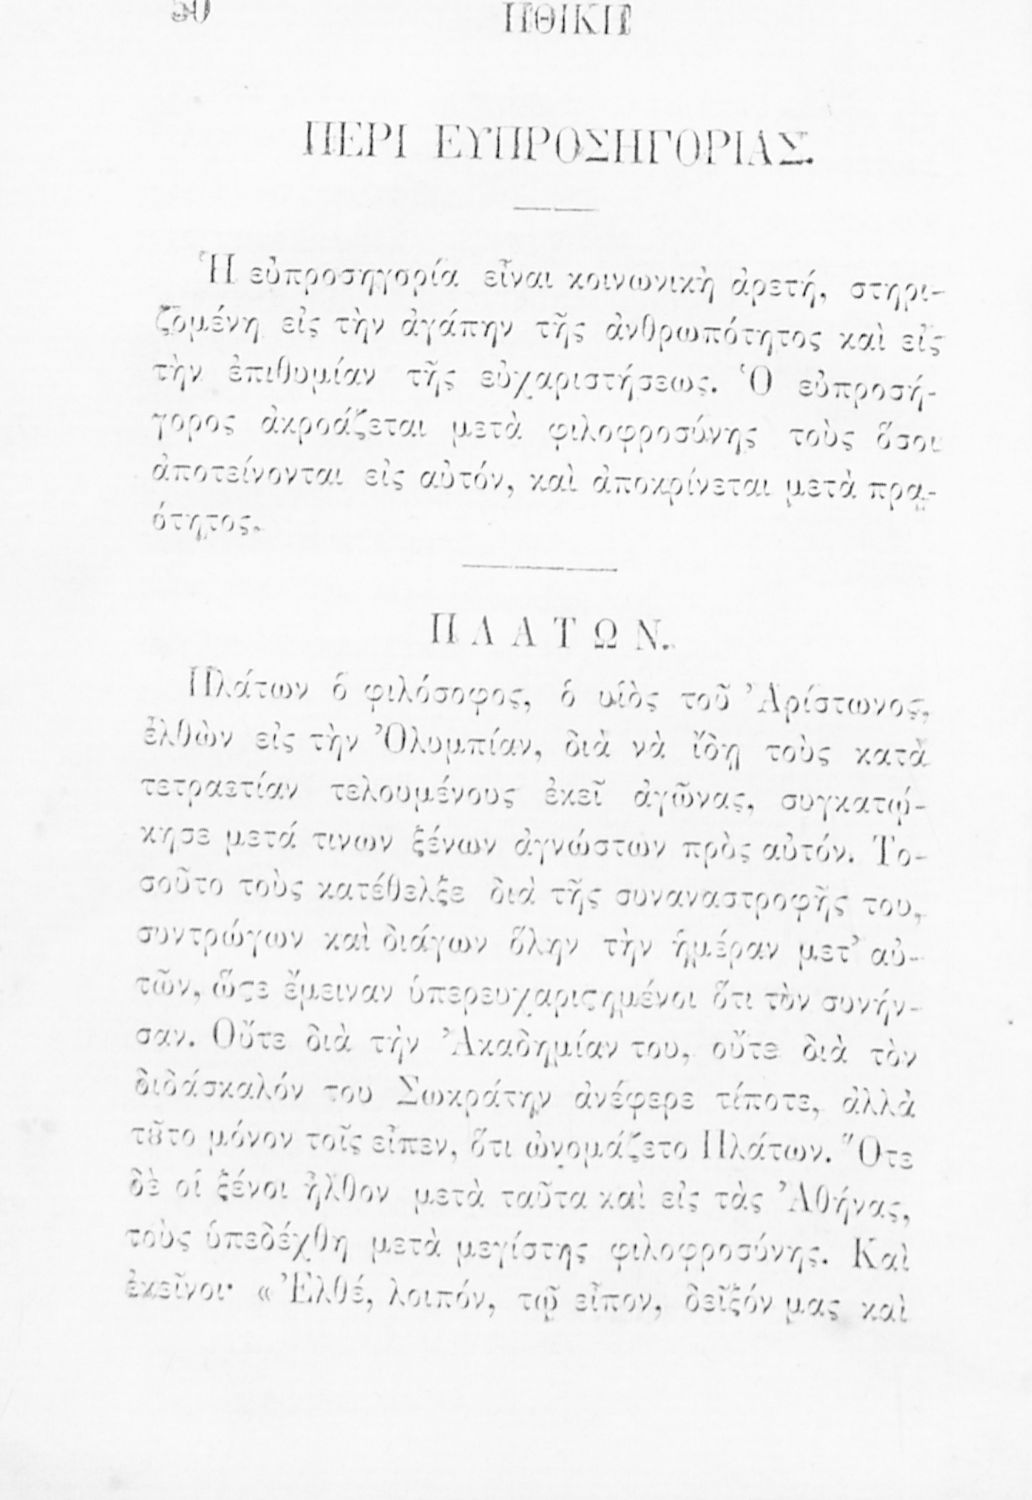 ΗΘΙΚΗ
ΠΕΡΙ ΕΥΠΡΟΣΗΓΟΡΙΑΣ.
Ἡ εὐπροσηγορία εἶναι κοινωνικὴ ἀρετή, στηρι-
ζομένη εἰς τὴν ἀγάπην τῆς ἀνθρωπότητος καὶ εἰς
τὴν ἐπιθυμίαν τῆς εὐχαριστήσεως. Ὁ εὐπροσή-
γορος ἀκροάζεται μετὰ φιλοφροσύνης τοὺς ὅσοι
ἀποτείνονται εἰς αὐτόν, καὶ ἀποκρίνεται μετὰ πρᾳ-
ότητος.
ΠΛΑΤΩΝ.
Πλάτων ὁ φιλόσοφος, ὁ υἱὸς τοῦ Ἀρίστωνος,
ἐλθὼν εἰς τὴν Ὀλυμπίαν, διὰ νὰ ἴδῃ τοὺς κατὰ
τετραετίαν τελουμένους ἐκεῖ ἀγῶνας, συγκατῴ-
κησε μετά τινων ξένων ἀγνώστων πρὸς αὐτόν. Το-
σοῦτο τοὺς κατέθελξε διὰ τῆς συναναστροφῆς του,
συντρώγων καὶ διάγων ὅλην τὴν ἡμέραν μετ' αὐ-
τῶν, ὥςε ἔμειναν ὑπερευχαριςημένοι ὅτι τὸν συνήν-
σαν. Οὔτε διὰ τὴν Ἀκαδημίαν του, οὔτε διὰ τὸν
διδάσκαλόν του Σωκράτην ἀνέφερε τίποτε, ἀλλὰ
τȣ͂το μόνον τοῖς εἶπεν, ὅτι ὠνομάζετο Πλάτων. Ὅτε
δὲ οἱ ξένοι ἦλθον μετὰ ταῦτα καὶ εἰς τὰς Ἀθήνας,
τοὺς ὑπεδέχθη μετὰ μεγίστης φιλοφροσύνης. Καὶ
ἐκεῖνοι· « Ἐλθέ, λοιπόν, τῷ εἶπον, δεῖξόν μας καὶ